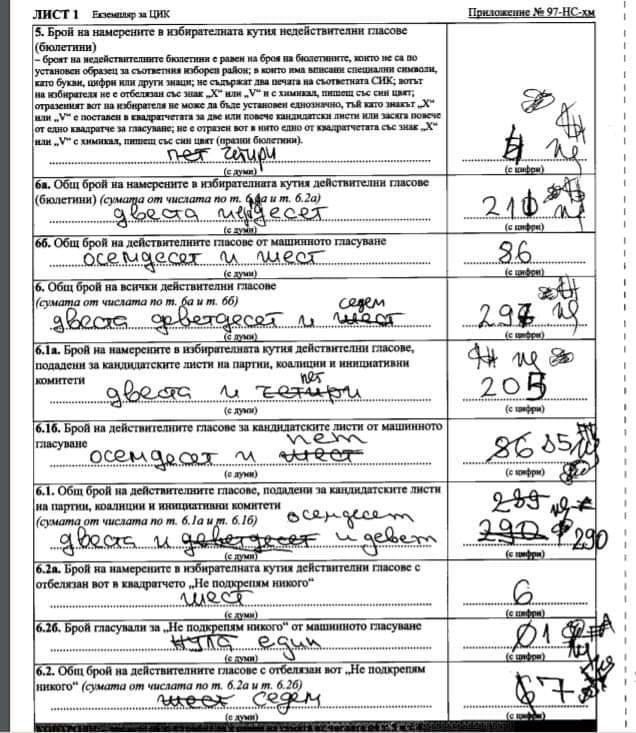 ЛИСТ 1 Екземпляр за ЦИК Приложение № 97-НС-хм
5. Брой на намерените в избирателната кутия недействителни гласове
(бюлетини)
– броят на недействителните бюлетини е равен на броя на бюлетините, които не са по
установен образец за съответния изборен район; в които има вписани специални символи,
като букви, цифри или други знаци; не съдържат два печата на съответната СИК; вотът
на избирателя не е отбелязан със знак „X“ или „V“ и с химикал, пишещ със син цвят;
отразеният вот на избирателя не може да бъде установен еднозначно, тъй като знакът „X“
или „V“ е поставен в квадратчетата за две или повече кандидатски листи или засяга повече
от едно квадратче за гласуване; не е отразен вот в нито едно от квадратчетата със знак „X“
или „V“ с химикал, пишещ със син цвят (празни бюлетини).
пет четири
(с думи) (с цифри)
6а. Общ брой на намерените в избирателната кутия действителни гласове
(бюлетини) (сумата от числата по т. 6.1а и т. 6.2а)
двеста 211
(с думи) (с цифри)
6б. Общ брой на действителните гласове от машинното гласуване
осемдесет и шест 86
(с думи) (с цифри)
6. Общ брой на всички действителни гласове
(сумата от числата по т. 6а и т. 6б) седем
двеста деветдесет и шест 297
(с думи) (с цифри)
6.1а. Брой на намерените в избирателната кутия действителни гласове,
подадени за кандидатските листи на партии, коалиции и инициативни
комитети пет
двеста и четири 205
(с думи) (с цифри)
6.1б. Брой на действителните гласове за кандидатските листи от машинното
гласуване пет
осемдесет и шест 86 85
(с думи) (с цифри)
6.1. Общ брой на действителните гласове, подадени за кандидатските листи
на партии, коалиции и инициативни комитети 289
(сумата от числата по т. 6.1а и т. 6.1б) осемдесет
двеста и деветдесет и девет 290 290
(с думи) (с цифри)
6.2а. Брой на намерените в избирателната кутия действителни гласове с
отбелязан вот в квадратчето „Не подкрепям никого“
шест 6
(с думи) (с цифри)
6.2б. Брой гласували за „Не подкрепям никого“ от машинното гласуване
нула един 01
(с думи) (с цифри)
6.2. Общ брой на действителните гласове с отбелязан вот „Не подкрепям
никого“ (сумата от числата по т. 6.2а и т. 6.2б)
шест седем 67
(с думи) (с цифри)